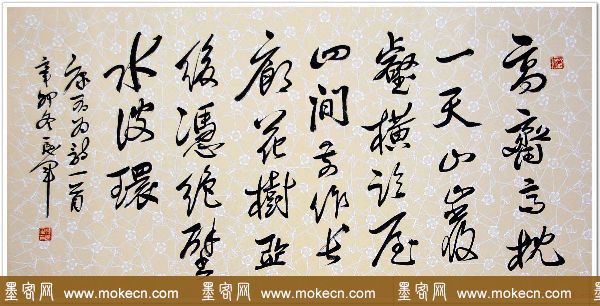 高齋高枕
一天山巖
壑橫屋
四間前作長
廊花樹亞
後憑絕壁
水波環
康有为詩一首
辛卯冬
墨客网 www.mokecn.com 墨客网 www.mokecn.com 墨客网 www.mokecn.com 墨客网 www.mokecn.com